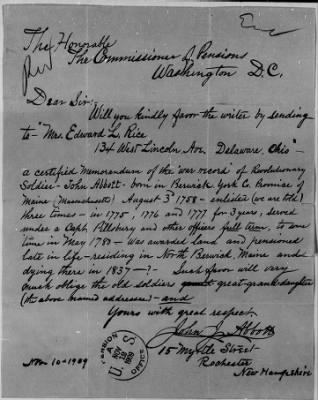 The Honorable
The Commissioner of Pensions
Washington D.C.
Dear Sir:
Will you kindly favor the writer by sending
to "Mrs. Edward L. Rice
134 West Lincoln Ave. Delaware, Ohio" -
a certified Memorandum of the 'war record' of Revolutionary
Soldier - John Abbott - born in Berwick York Co. Province of
Maine (Massachusetts) August 3d 1758 - enlisted (we are told)
three times - in 1775, 1776 and 1777 for 3 years, served
under a Capt. Pillsbury and other officers full term, to some
time in May 1780 - Was awarded land and pensioned
late in life - residing in North Berwick, Maine and
dying there in 1837 - ? - Such favor will very
much oblige the old soldier's great-grand-daughter
(the above named addressee) - and
Yours with great respect,
John Abbott
15 Myrtle Street
Rochester
New Hampshire
Nov. 10 - 1909
PENSION OFFICE
U. S.
NOV
1909